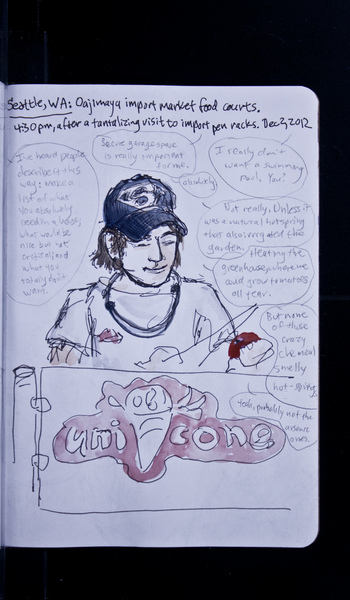 Seattle, WA: Oajimaya import market food courts.
4:30 pm, after a tantalizing visit to import pen racks. Dec 2, 2012
I've heard people
describe it this
way: make a
list of what
you absolutely
need in a house,
what would be
nice but not
critical and
what you
totally don't
want.
Secure garage space
is really important
for me.
Absolutely.
I really don't
want a swimming
pool. You?
Not really. Unless it
was a natural hotspring
that also irrigated the
garden.
Heating the
greenhouse, where we
could grow tomatoes
all year.
But none
of those
crazy
chemical
smelly
hot-springs
Yeah, probably not the
arsenic
ones.
OBI
uni cone